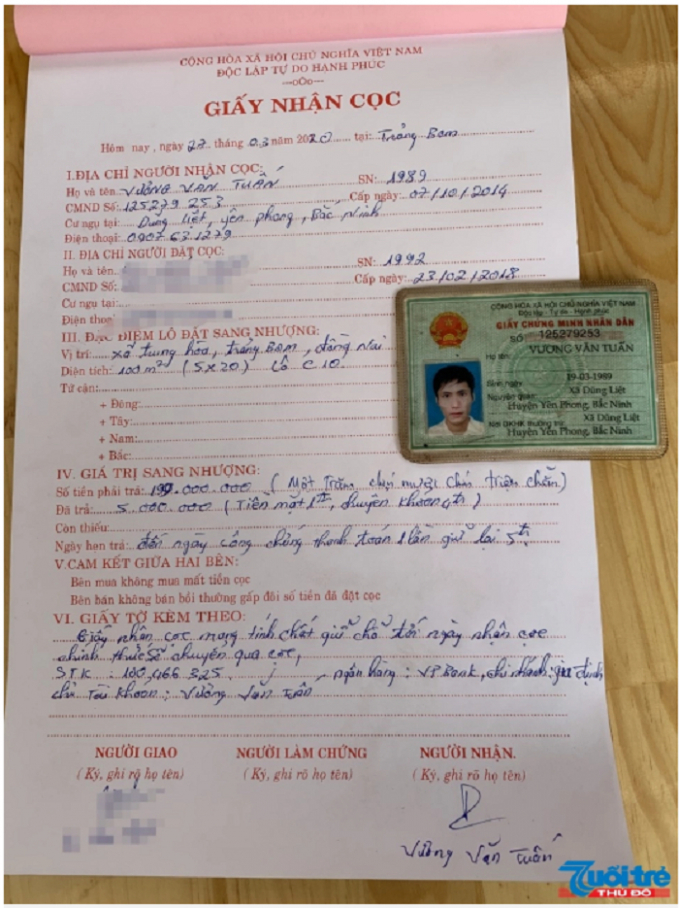 CỘNG HÒA XÃ HỘI CHỦ NGHĨA VIỆT NAM
ĐỘC LẬP TỰ DO HẠNH PHÚC
---oOo---
GIẤY NHẬN CỌC
Hôm nay, ngày 27 tháng 03 năm 2020 tại: Trảng Bom
I. ĐỊA CHỈ NGƯỜI NHẬN CỌC:
Họ và tên: VƯƠNG VĂN TUẤN SN: 1989
CMND Số: 125279 253 Cấp ngày: 07/10/2014
Cư ngụ tại: Dung Liệt, yên phong, Bắc Ninh
Điện thoại: 0907 63 1279
II. ĐỊA CHỈ NGƯỜI ĐẶT CỌC:
Họ và tên SN: 1992
CMND Số: Cấp ngày: 23/02/2018
Cư ngụ tại:
Điện thoại
III. ĐẶC ĐIỂM LÔ ĐẤT SANG NHƯỢNG:
Vị trí: xã trung hòa, trảng Bom, đồng Nai
Diện tích: 100m² (5x20) Lô C10
Tứ cận:
+ Đông:
+ Tây:
+ Nam:
+ Bắc:
IV. GIÁ TRỊ SANG NHƯỢNG:
Số tiền phải trả: 199.000.000 (Một Trăm chín mươi chín triệu chẵn)
Đã trả: 5.000.000 (Tiền mặt 1tr, chuyển khoản 4tr)
Còn thiếu:
Ngày hẹn trả: đến ngày công chứng thanh toán 1 lần giữ lại 5tr
V. CAM KẾT GIỮA HAI BÊN:
Bên mua không mua mất tiền cọc
Bên bán không bán bồi thường gấp đôi số tiền đã đặt cọc
VI. GIẤY TỜ KÈM THEO:
Giấy nhận cọc mang tính chất giữ chỗ tới ngày nhận cọc
chính thức sẽ chuyển qua cọc,
STK: 180,466 325 ngân hàng: VP Bank, chi nhánh: gia định
chủ Tài khoản: Vương Văn Tuấn
NGƯỜI GIAO NGƯỜI LÀM CHỨNG NGƯỜI NHẬN.
(Ký, ghi rõ họ tên) (Ký, ghi rõ họ tên) (Ký, ghi rõ họ tên)
Vương Văn Tuấn
CỘNG HÒA XÃ HỘI CHỦ NGHĨA VIỆT NAM
Độc lập - Tự do - Hạnh phúc
GIẤY CHỨNG MINH NHÂN DÂN
SỐ 125279253
Họ tên: VƯƠNG VĂN TUẤN
Sinh ngày 19-03-1989
Nguyên quán Xã Dũng Liệt
Huyện Yên Phong, Bắc Ninh
Nơi ĐKHK thường trú Xã Dũng Liệt
Huyện Yên Phong, Bắc Ninh
Tuổi trẻ
THỦ ĐÔ